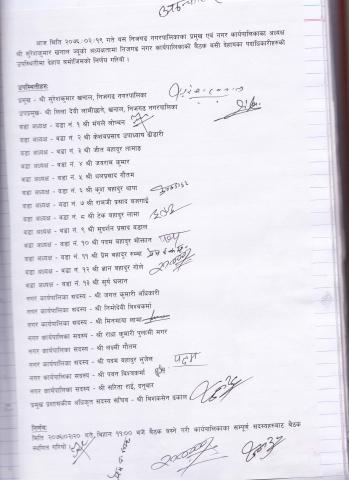 आज मिति २०७६/०२/१९ गते यस निजगढ नगरपालिकाका प्रमुख एवं नगर कार्यपालिकाका अध्यक्ष
श्री सुरेशकुमार खनाल ज्यूको अध्यक्षतामा निजगढ नगर कार्यपालिकाको बैठक बसी देहायका पदाधिकारीहरुको
उपस्थितीमा देहाय बमोजिमको निर्णय गरियो ।
उपस्थितीहरु
प्रमुख - श्री सुरेशकुमार खनाल, निजगढ नगरपालिका
उपप्रमुख- श्री लिला देवी लामीछाने, खनाल, निजगढ नगरपालिका
वडा अध्यक्ष - वडा नं. १ श्री मंगले लोप्चन
वडा अध्यक्ष - वडा नं. २ श्री केशवप्रसाद उपाध्याय
वडा अध्यक्ष - वडा नं. ३ श्री जीत बहादुर लामाङ
वडा अध्यक्ष - वडा नं. ४ श्री जयराम कुमार
वडा अध्यक्ष - वडा नं. ५ श्री थलप्रसाद गौतम
वडा अध्यक्ष - वडा नं. ६ श्री कृश बहादुर थापा
वडा अध्यक्ष - वडा नं. ७ श्री रामजी प्रसाद बजगाई
वडा अध्यक्ष - वडा नं. ८ श्री टेक बहादुर लामा
वडा अध्यक्ष - वडा नं. ९ श्री सुदर्शन प्रसाद
वडा अध्यक्ष - वडा नं. १० श्री पदम बहादुर मोक्तान
वडा अध्यक्ष - वडा नं. ११ श्री प्रेम बहादुर
वडा अध्यक्ष - वडा नं. १२ श्री ज्ञान बहादुर गोले
वडा अध्यक्ष - वडा नं. १३ श्री सुर्य घलान
नगर कार्यपालिका सदस्य - श्री जगत कुमारी अधिकारी
नगर कार्यपालिका सदस्य - श्री निमादेवी विश्वकर्मा
नगर कार्यपालिका सदस्य - श्री मिनमाया लामा
नगर कार्यपालिका सदस्य - श्री राधा कुमारी पुलामी मगर
नगर कार्यपालिका सदस्य - श्री लक्ष्मी गौतम
नगर कार्यपालिका सदस्य - श्री पदम बहादुर भुजेल
नगर कार्यपालिका सदस्य - श्री पवन विश्वकर्मा
नगर कार्यपालिका सदस्य - श्री सरिता राई, दनुवार
प्रमुख प्रशासकीय अधिकृत सदस्य सचिव - श्री विशकसेन ढकाल
निर्णयः
मिति २०७६/०२/२० गते विहान ११:०० बजे बैठक बस्ने गरी कार्यपालिकाका सम्पूर्ण सदस्यहरुबाट बैठक
स्थगित गरियो ।